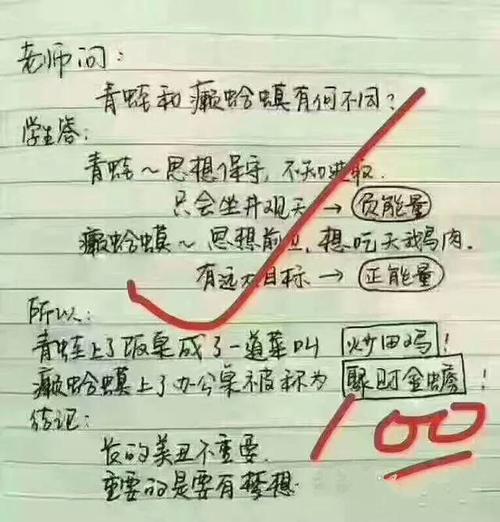 老师问:
青蛙和癞蛤蟆有何不同?
学生答:
青蛙~思想保守,不知进取.
只会坐井观天→负能量
癞蛤蟆~思想前卫,想吃天鹅肉.
有远大目标→正能量
所以:
青蛙上了饭桌成了一道菜叫 炒田鸡!
癞蛤蟆上了办公桌被称为 聚财金蟾!
结记:
长的美丑不重要.
重要的是要有梦想.
100